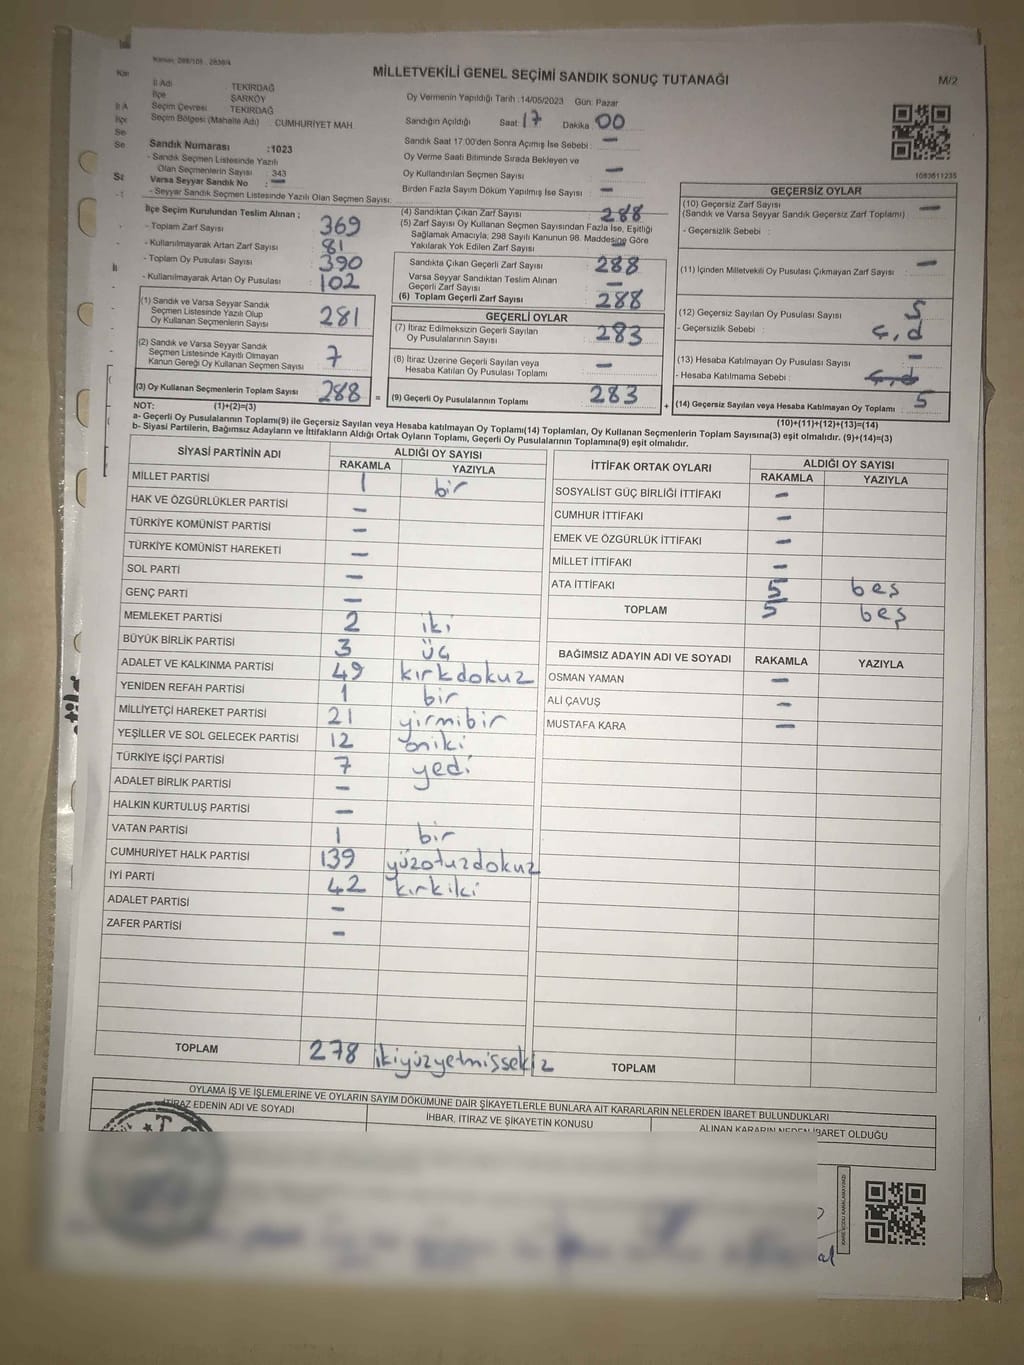 Kanun: 298/105 , 2839/4
MİLLETVEKİLİ GENEL SEÇİMİ SANDIK SONUÇ TUTANAĞI
M/2
İl Adı : TEKİRDAĞ
İlçe : ŞARKÖY
Seçim Çevresi : TEKİRDAĞ
Seçim Bölgesi (Mahalle Adı) : CUMHURİYET MAH.
Oy Vermenin Yapıldığı Tarih :14/05/2023 Gün: Pazar
Sandığın Açıldığı Saat: 17 Dakika: 00
Sandık Saat 17:00'den Sonra Açılmış İse Sebebi : –
Oy Verme Saati Bitiminde Sırada Bekleyen ve
Oy Kullandırılan Seçmen Sayısı : –
Birden Fazla Sayım Döküm Yapılmış İse Sayısı : –
Sandık Numarası :1023
- Sandık Seçmen Listesinde Yazılı
Olan Seçmenlerin Sayısı : 343
Varsa Seyyar Sandık No : –
- Seyyar Sandık Seçmen Listesinde Yazılı Olan Seçmen Sayısı:
1083611235
İlçe Seçim Kurulundan Teslim Alınan ;
- Toplam Zarf Sayısı : 369
- Kullanılmayarak Artan Zarf Sayısı : 81
- Toplam Oy Pusulası Sayısı : 390
- Kullanılmayarak Artan Oy Pusulası : 102
(1) Sandık ve Varsa Seyyar Sandık
Seçmen Listesinde Yazılı Olup
Oy Kullanan Seçmenlerin Sayısı : 281
(2) Sandık ve Varsa Seyyar Sandık
Seçmen Listesinde Kayıtlı Olmayan
Kanun Gereği Oy Kullanan Seçmen Sayısı : 7
(3) Oy Kullanan Seçmenlerin Toplam Sayısı : 288
(4) Sandıktan Çıkan Zarf Sayısı : 288
(5) Zarf Sayısı Oy Kullanan Seçmen Sayısından Fazla İse, Eşitliği
Sağlamak Amacıyla; 298 Sayılı Kanunun 98. Maddesine Göre
Yakılarak Yok Edilen Zarf Sayısı : –
Sandıkta Çıkan Geçerli Zarf Sayısı : 288
Varsa Seyyar Sandıktan Teslim Alınan
Geçerli Zarf Sayısı : –
(6) Toplam Geçerli Zarf Sayısı : 288
GEÇERLİ OYLAR
(7) İtiraz Edilmeksizin Geçerli Sayılan
Oy Pusulalarının Sayısı : 283
(8) İtiraz Üzerine Geçerli Sayılan veya
Hesaba Katılan Oy Pusulası Toplamı : –
= (9) Geçerli Oy Pusulalarının Toplamı : 283
GEÇERSİZ OYLAR
(10) Geçersiz Zarf Sayısı
(Sandık ve Varsa Seyyar Sandık Geçersiz Zarf Toplamı) : –
- Geçersizlik Sebebi :
(11) İçinden Milletvekili Oy Pusulası Çıkmayan Zarf Sayısı : –
(12) Geçersiz Sayılan Oy Pusulası Sayısı : 5
- Geçersizlik Sebebi : ç,d
(13) Hesaba Katılmayan Oy Pusulası Sayısı : –
- Hesaba Katılmama Sebebi : ç,d
+ (14) Geçersiz Sayılan veya Hesaba Katılmayan Oy Toplamı : 5
NOT: (1)+(2)=(3)
(10)+(11)+(12)+(13)=(14)
a- Geçerli Oy Pusulalarının Toplamı(9) ile Geçersiz Sayılan veya Hesaba katılmayan Oy Toplamı(14) Toplamları, Oy Kullanan Seçmenlerin Toplam Sayısına(3) eşit olmalıdır. (9)+(14)=(3)
b- Siyasi Partilerin, Bağımsız Adayların ve İttifakların Aldığı Ortak Oyların Toplamı, Geçerli Oy Pusulalarının Toplamına(9) eşit olmalıdır.
SİYASİ PARTİNİN ADI ALDIĞI OY SAYISI
RAKAMLA YAZIYLA
MİLLET PARTİSİ 1 bir
HAK VE ÖZGÜRLÜKLER PARTİSİ –
TÜRKİYE KOMÜNİST PARTİSİ –
TÜRKİYE KOMÜNİST HAREKETİ –
SOL PARTİ –
GENÇ PARTİ –
MEMLEKET PARTİSİ 2 iki
BÜYÜK BİRLİK PARTİSİ 3 üç
ADALET VE KALKINMA PARTİSİ 49 kırkdokuz
YENİDEN REFAH PARTİSİ 1 bir
MİLLİYETÇİ HAREKET PARTİSİ 21 yirmibir
YEŞİLLER VE SOL GELECEK PARTİSİ 12 oniki
TÜRKİYE İŞÇİ PARTİSİ 7 yedi
ADALET BİRLİK PARTİSİ –
HALKIN KURTULUŞ PARTİSİ –
VATAN PARTİSİ 1 bir
CUMHURİYET HALK PARTİSİ 139 yüzotuzdokuz
İYİ PARTİ 42 kırkiki
ADALET PARTİSİ –
ZAFER PARTİSİ –
TOPLAM 278 ikiyüzyetmişsekiz
İTTİFAK ORTAK OYLARI ALDIĞI OY SAYISI
RAKAMLA YAZIYLA
SOSYALİST GÜÇ BİRLİĞİ İTTİFAKI –
CUMHUR İTTİFAKI –
EMEK VE ÖZGÜRLÜK İTTİFAKI –
MİLLET İTTİFAKI –
ATA İTTİFAKI 5 beş
TOPLAM 5 beş
BAĞIMSIZ ADAYIN ADI VE SOYADI RAKAMLA YAZIYLA
OSMAN YAMAN –
ALİ ÇAVUŞ –
MUSTAFA KARA –
TOPLAM
OYLAMA İŞ VE İŞLEMLERİNE VE OYLARIN SAYIM DÖKÜMÜNE DAİR ŞİKAYETLERLE BUNLARA AİT KARARLARIN NELERDEN İBARET BULUNDUKLARI
İTİRAZ EDENİN ADI VE SOYADI
İHBAR, İTİRAZ VE ŞİKAYETİN KONUSU
ALINAN KARARIN NEDEN İBARET OLDUĞU